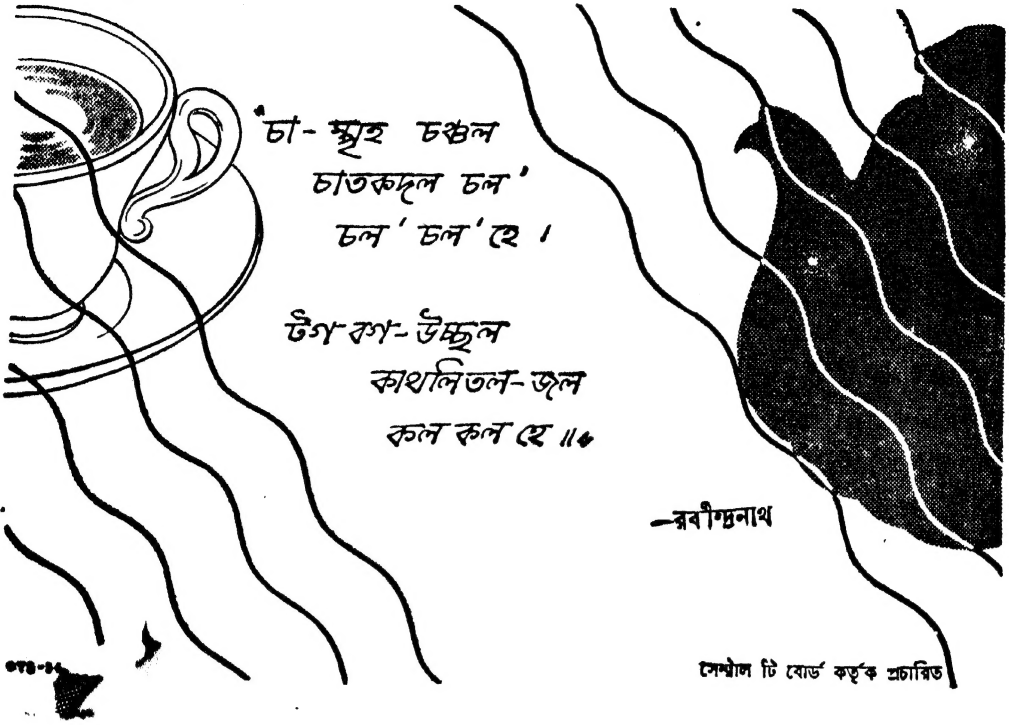 "চা-স্পৃহ চঞ্চল
চাতকদল চল'
চল' চল' হে।
টগ-বগ-উচ্ছল
কাথলিতল-জল
কল কল হে॥"
—রবীন্দ্রনাথ
সেন্ট্রাল টি বোর্ড কর্তৃক প্রচারিত